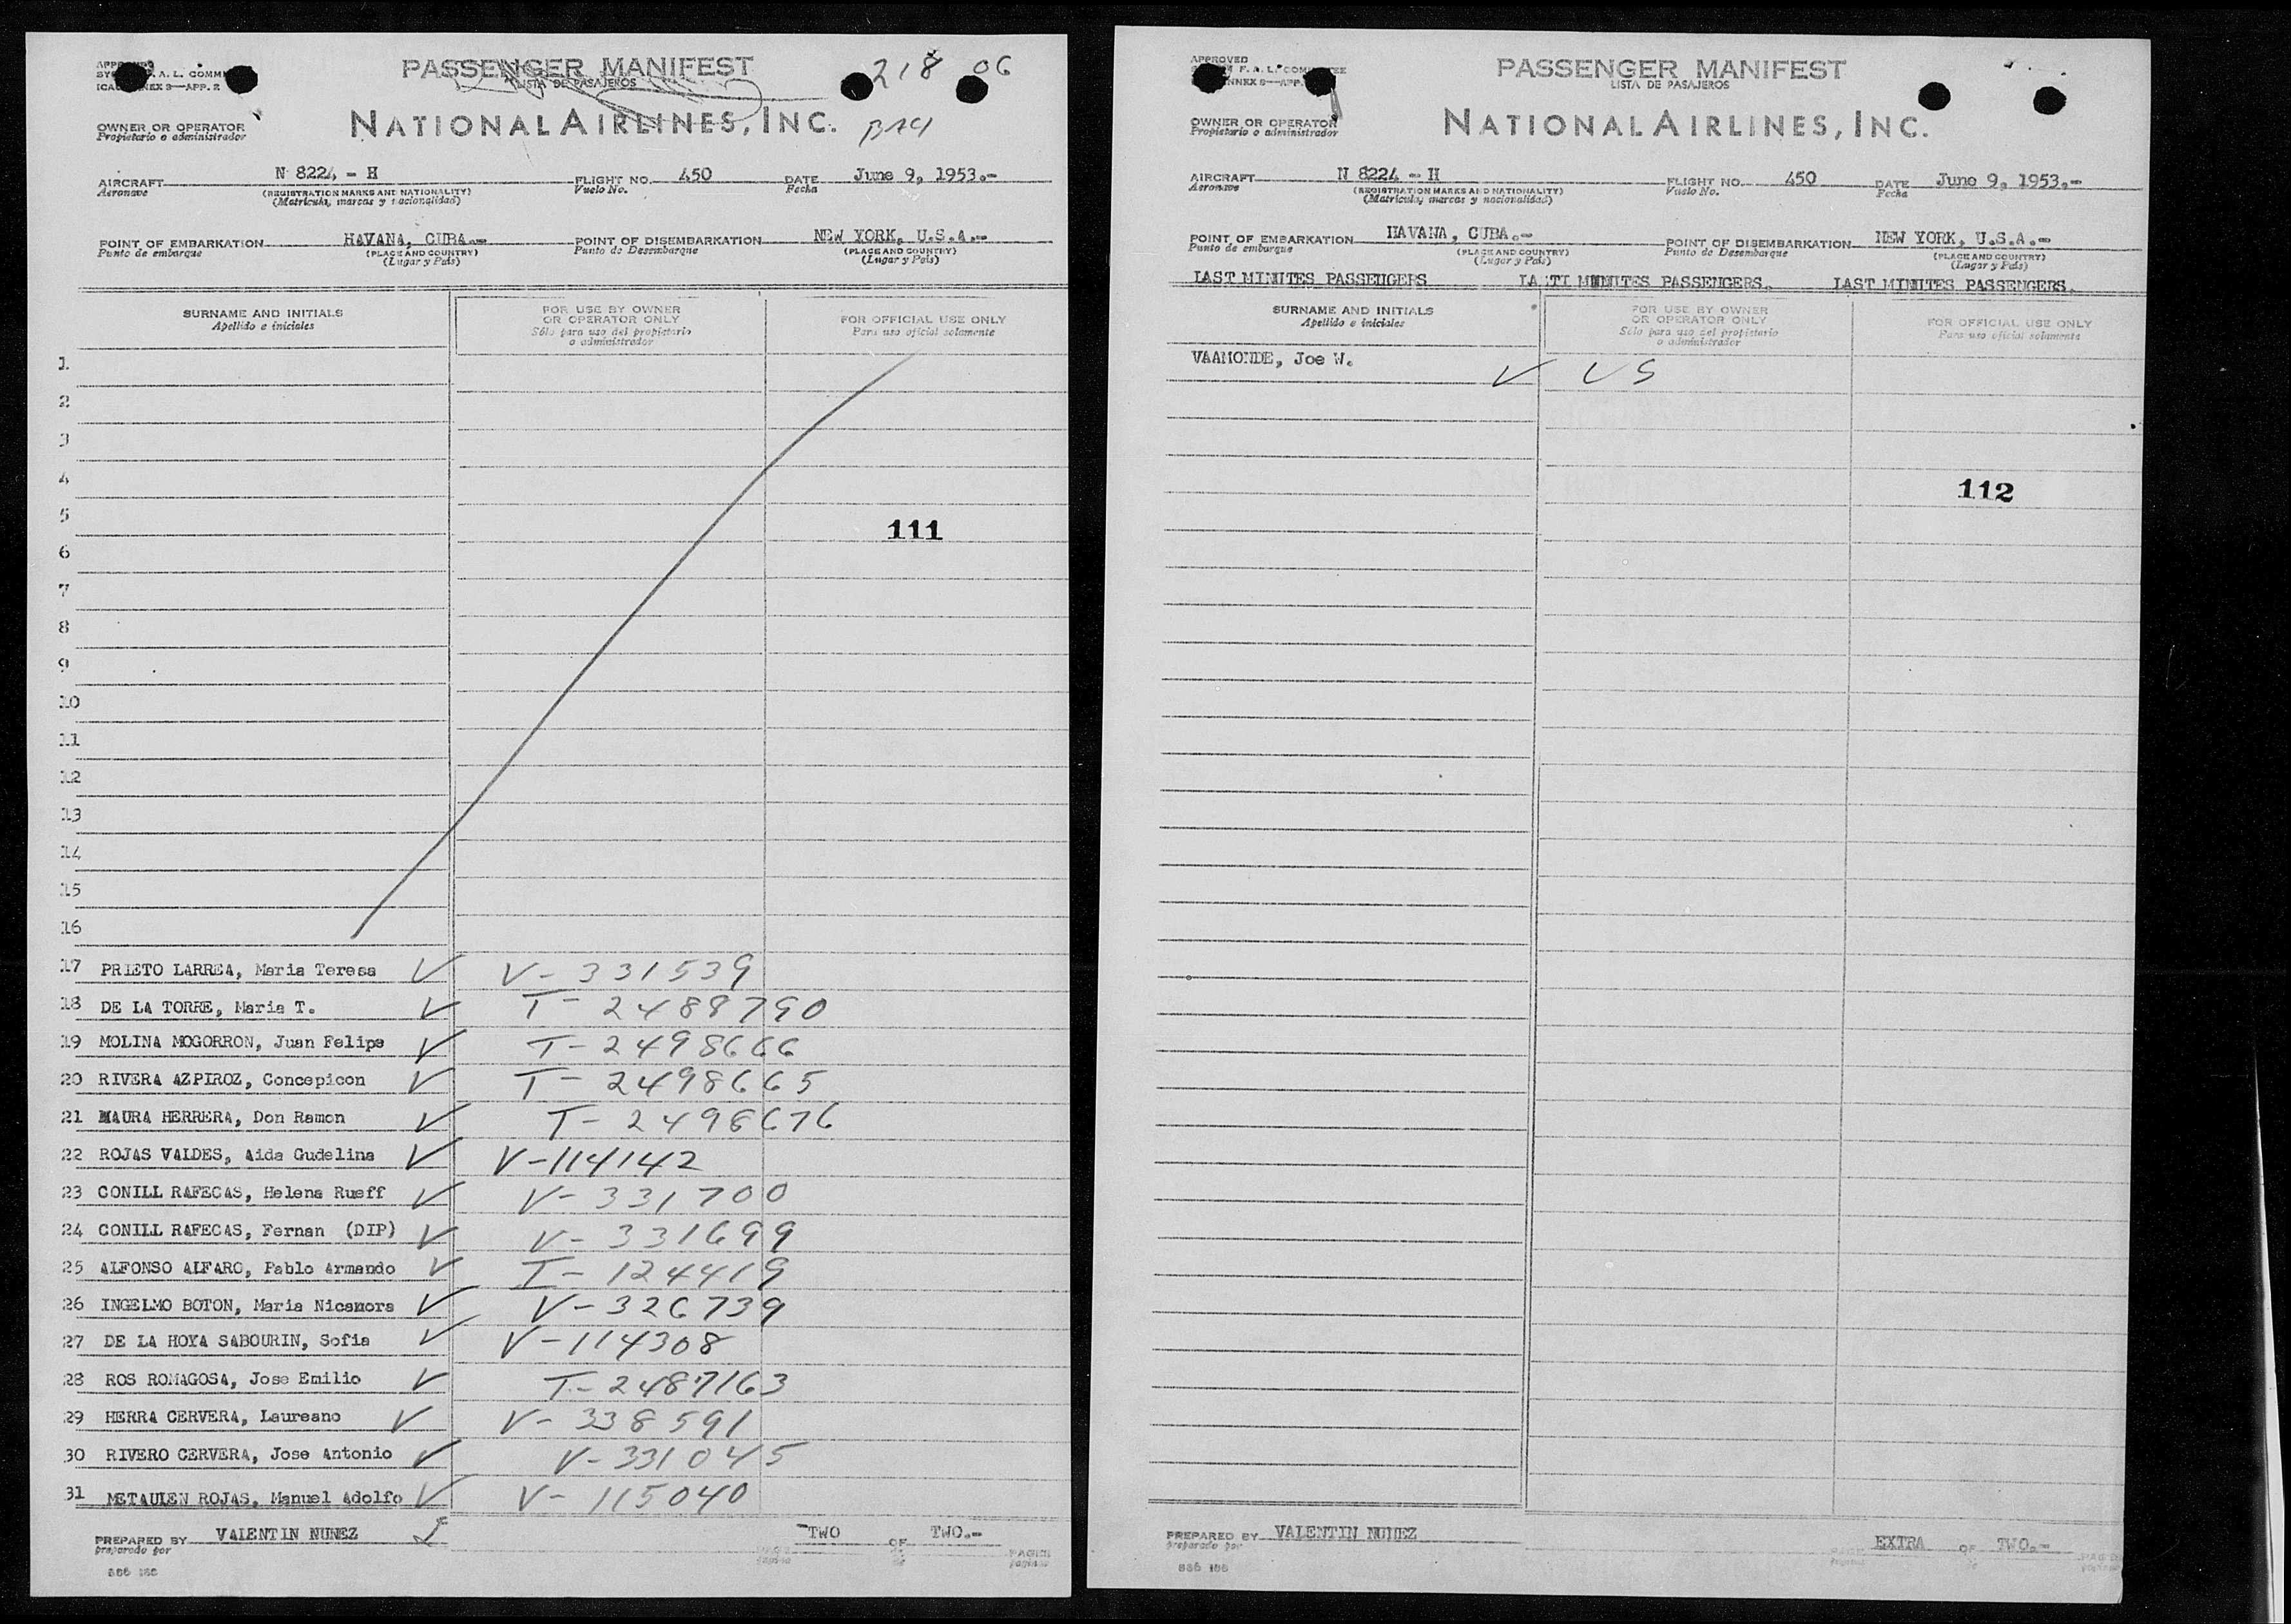 PASSENGER MANIFEST
LISTA DE PASAJEROS
218 06
ICAO ANNEX 9—APP. 2
OWNER OR OPERATOR
Propietario o administrador
NATIONAL AIRLINES, INC.
AIRCRAFT N 8224 - H FLIGHT NO. 450 DATE June 9, 1953.-
Aeronave (REGISTRATION MARKS AND NATIONALITY) Vuelo No. Fecha
(Matricula, marcas y nacionalidad)
POINT OF EMBARKATION HAVANA, CUBA.- POINT OF DISEMBARKATION NEW YORK, U.S.A.-
Punto de embarque (PLACE AND COUNTRY) Punto de Desembarque (PLACE AND COUNTRY)
(Lugar y Pais) (Lugar y Pais)
SURNAME AND INITIALS FOR USE BY OWNER OR OPERATOR ONLY FOR OFFICIAL USE ONLY
Apellido e iniciales Sólo para uso del propietario o administrador Para uso oficial solamente
1
2
3
4
5
111
6
7
8
9
10
11
12
13
14
15
16
17 PRIETO LARREA, Maria Teresa V-331539
18 DE LA TORRE, Maria T. T-2489790
19 MOLINA MOGORRON, Juan Felipe T-2498666
20 RIVERA AZPIROZ, Concepicon T-2498665
21 MAURA HERRERA, Don Ramon T-2498676
22 ROJAS VALDES, Aida Gudelina V-114142
23 CONILL RAFECAS, Helena Rueff V-331700
24 CONILL RAFECAS, Fernan (DIP) V-331699
25 ALFONSO ALFARO, Pablo Armando I-124419
26 INGELMO BOTON, Maria Nicanora V-326739
27 DE LA HOYA SABOURIN, Sofia V-114308
28 ROS ROMAGOSA, Jose Emilio T-2487163
29 HERRA CERVERA, Laureano V-338591
30 RIVERO CERVERA, Jose Antonio V-331045
31 METAULEN ROJAS, Manuel Adolfo V-115040
PREPARED BY VALENTIN NUNEZ TWO OF TWO.-
preparado por
APPROVED
ANNEX 9—APP.
PASSENGER MANIFEST
LISTA DE PASAJEROS
OWNER OR OPERATOR
Propietario o administrador
NATIONAL AIRLINES, INC.
AIRCRAFT N 8224 - H FLIGHT NO. 450 DATE June 9, 1953.-
Aeronave (REGISTRATION MARKS AND NATIONALITY) Vuelo No. Fecha
(Matricula, marcas y nacionalidad)
POINT OF EMBARKATION HAVANA, CUBA.- POINT OF DISEMBARKATION NEW YORK, U.S.A.-
Punto de embarque (PLACE AND COUNTRY) Punto de Desembarque (PLACE AND COUNTRY)
(Lugar y Pais) (Lugar y Pais)
LAST MINUTES PASSENGERS MINUTES PASSENGERS. LAST MINUTES PASSENGERS.
SURNAME AND INITIALS FOR USE BY OWNER OR OPERATOR ONLY FOR OFFICIAL USE ONLY
Apellido e iniciales Sólo para uso del propietario o administrador Para uso oficial solamente
VAAMONDE, Joe W. US
112
PREPARED BY VALENTIN NUNEZ EXTRA OF TWO.-
preparado por